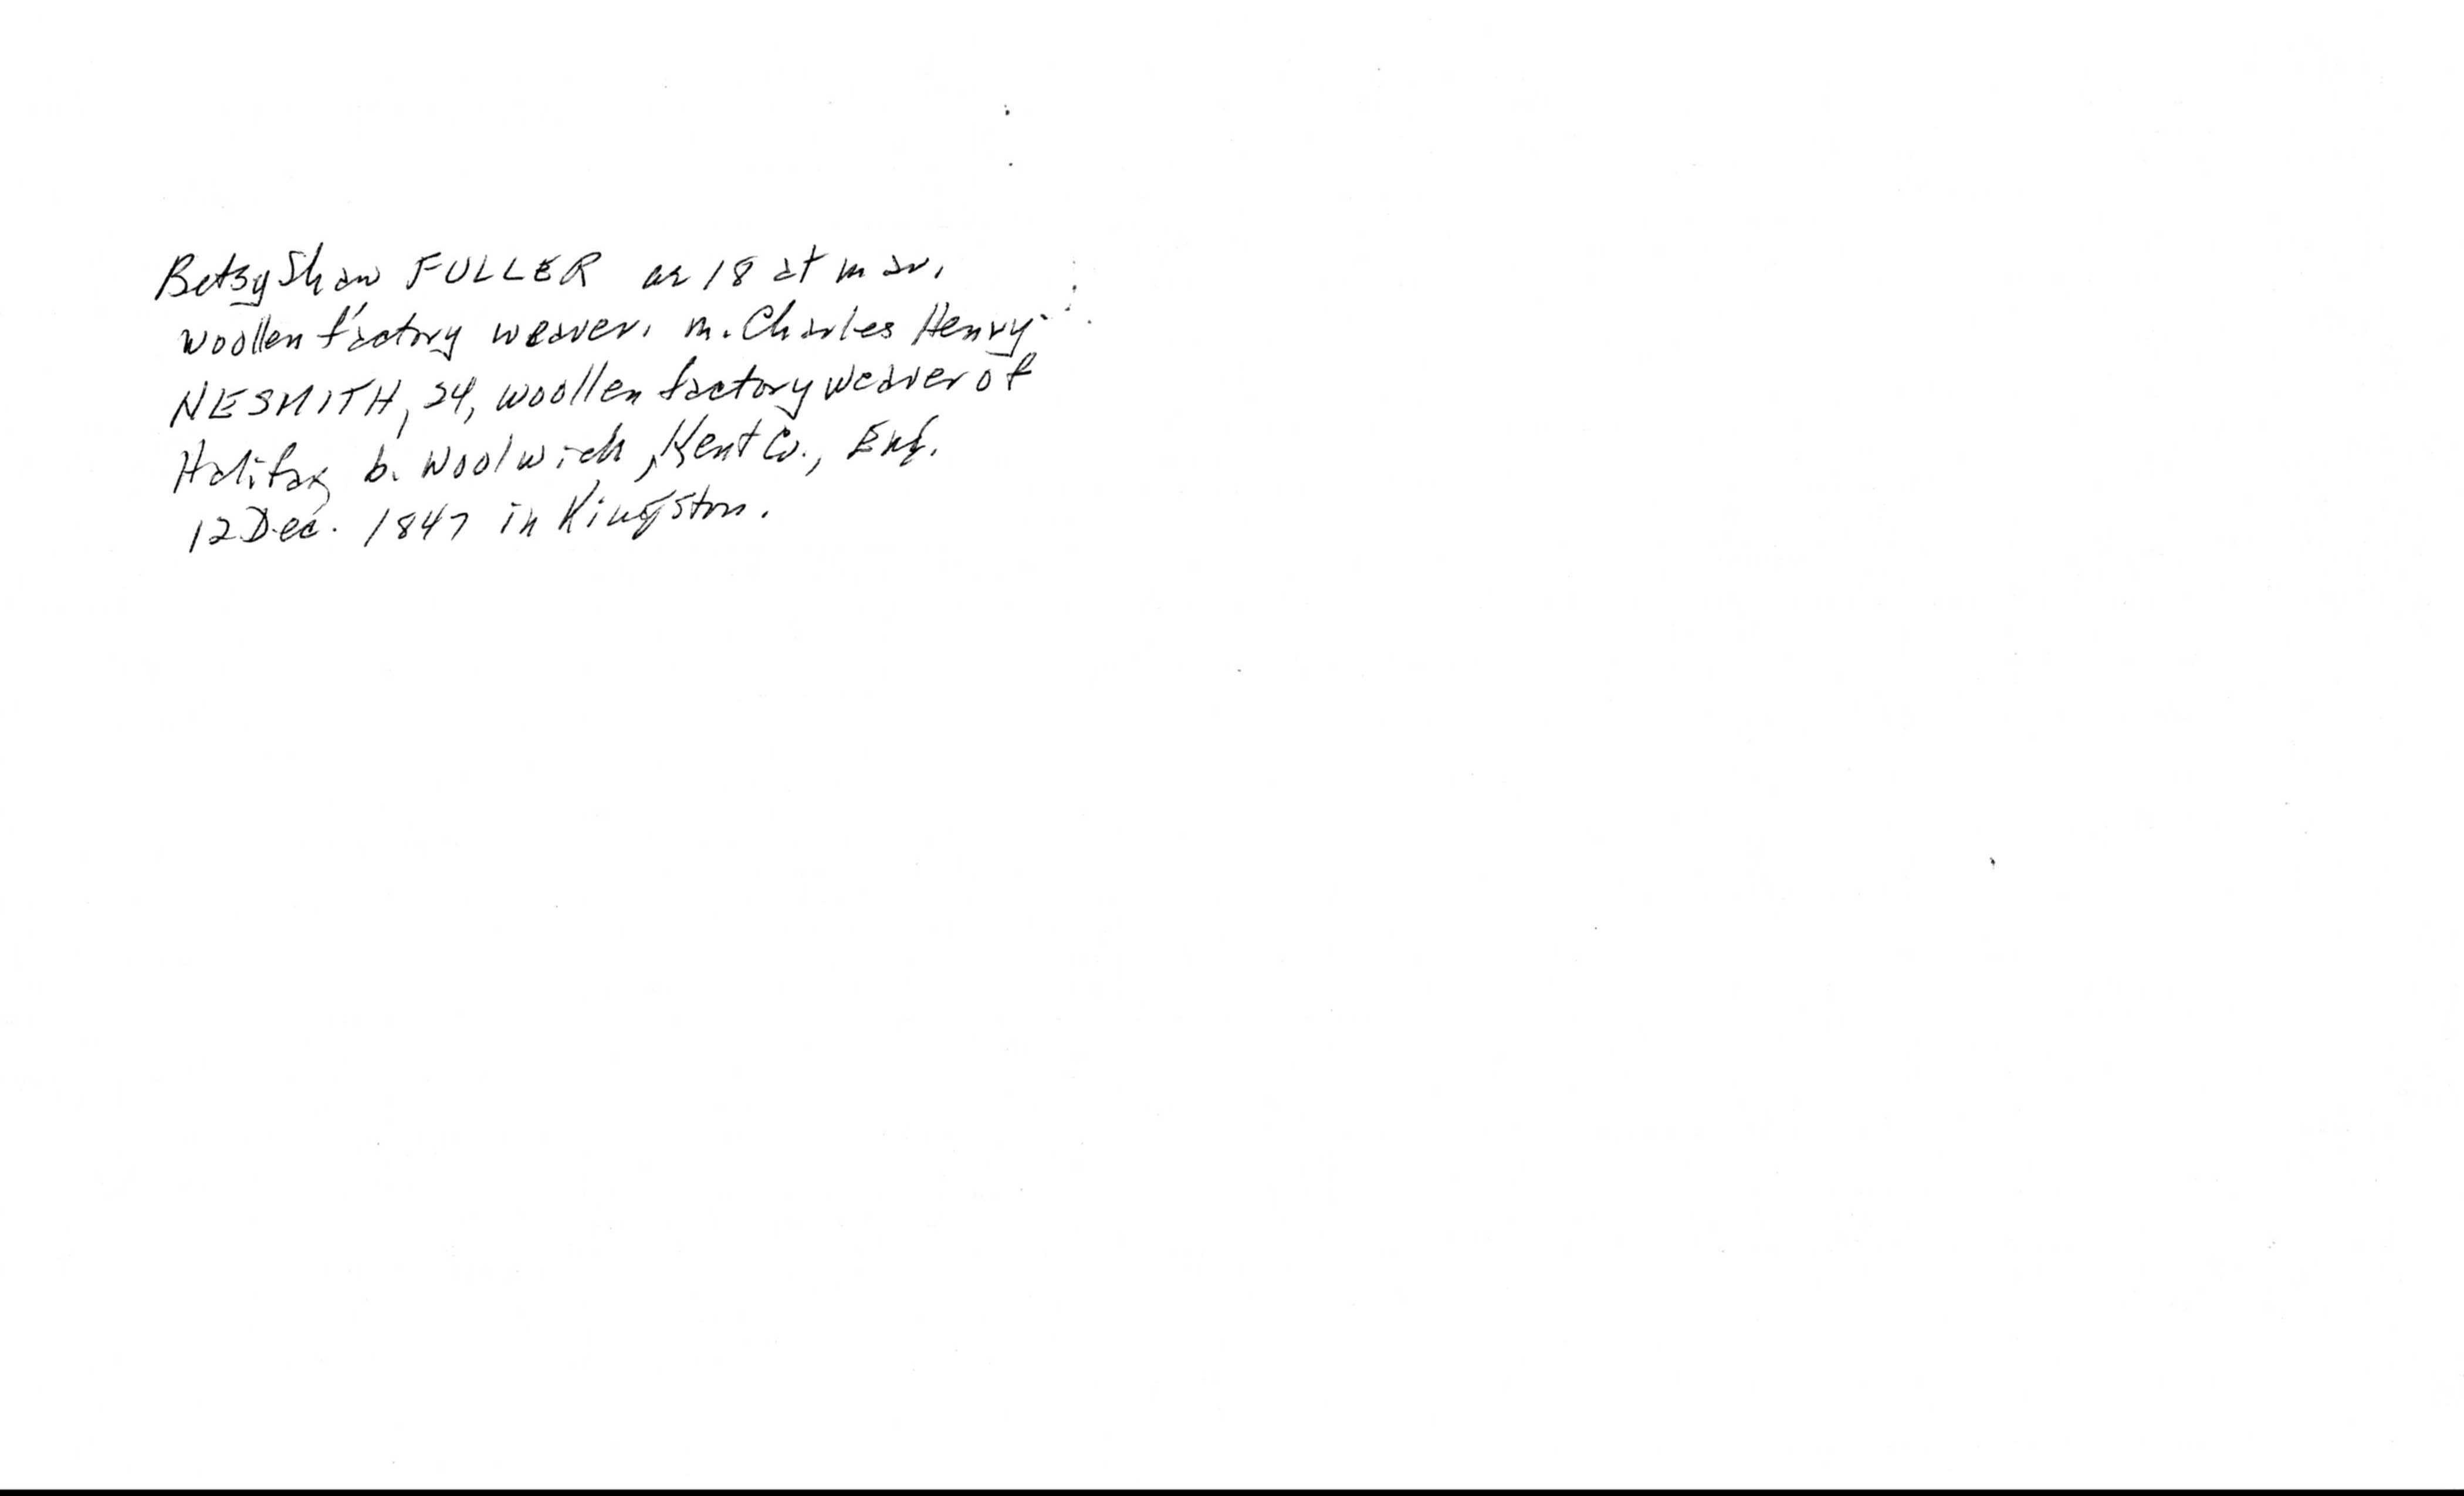 Betsy Shaw FULLER ae 18 at mar.
woollen factory weaver. m. Charles Henry
NESMITH, 24, woollen factory weaver of
Halifax b. Woolwich, Kent Co., Eng.
12 Dec. 1847 in Kingston.